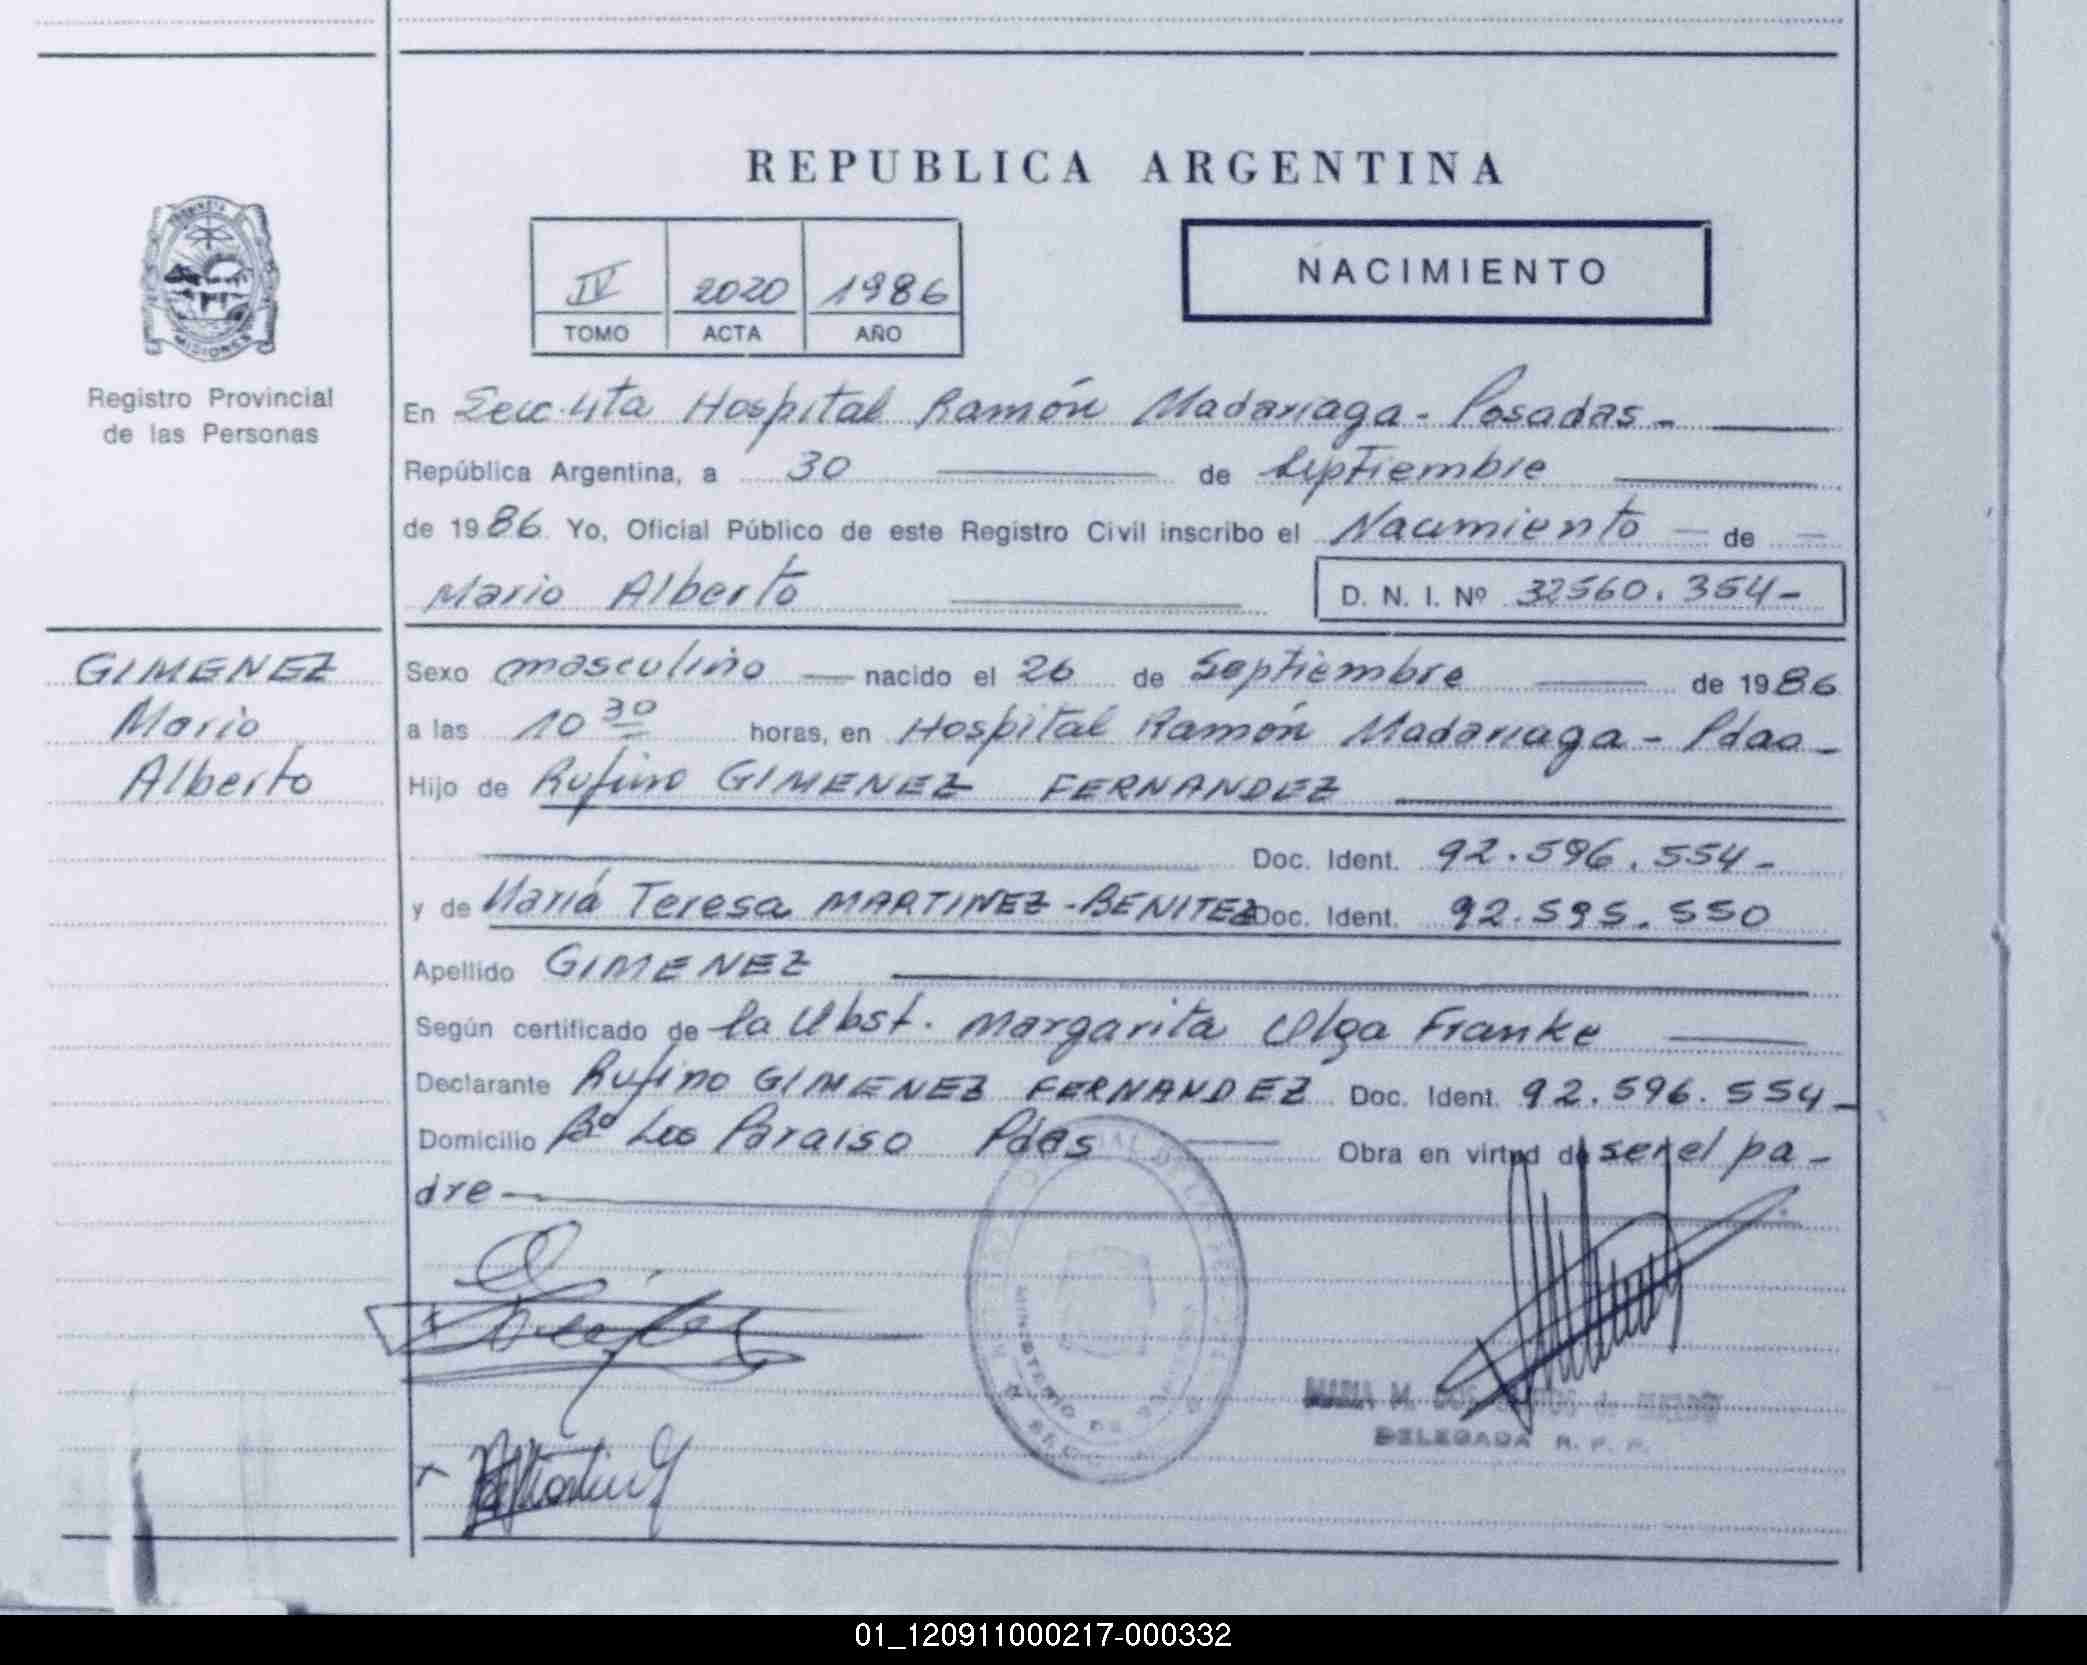 REPUBLICA ARGENTINA
IV 2020 1986
TOMO ACTA AÑO
NACIMIENTO
PROVINCIA
MISIONES
Registro Provincial
de las Personas
En Secc. 4ta Hospital Ramón Madariaga - Posadas -
República Argentina, a 30 de Septiembre
de 1986 Yo, Oficial Público de este Registro Civil inscribo el Nacimiento de
Mario Alberto
D. N. I. Nº 32560.354-
GIMENEZ
Mario
Alberto
Sexo masculino nacido el 26 de Septiembre de 1986
a las 10 30 horas, en Hospital Ramón Madariaga - Pdas -
Hijo de Rufino GIMENEZ FERNANDEZ
Doc. Ident. 92.596.554-
y de María Teresa MARTINEZ-BENITEZ Doc. Ident. 92.595.550
Apellido GIMENEZ
Según certificado de la Obst. Margarita Olga Franke
Declarante Rufino GIMENEZ FERNANDEZ Doc. Ident. 92.596.554-
Domicilio Bº Los Paraiso Pdas Obra en virtud de ser el pa-
dre
MINISTERIO DE
MARIA M.
DELEGADA R. P. P.
01_120911000217-000332